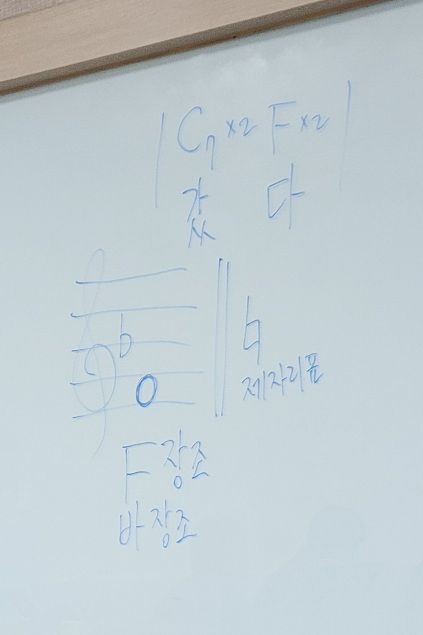 | C7 x2 F x2 |
갔 다
♭
♮
제자리표
F장조
바장조